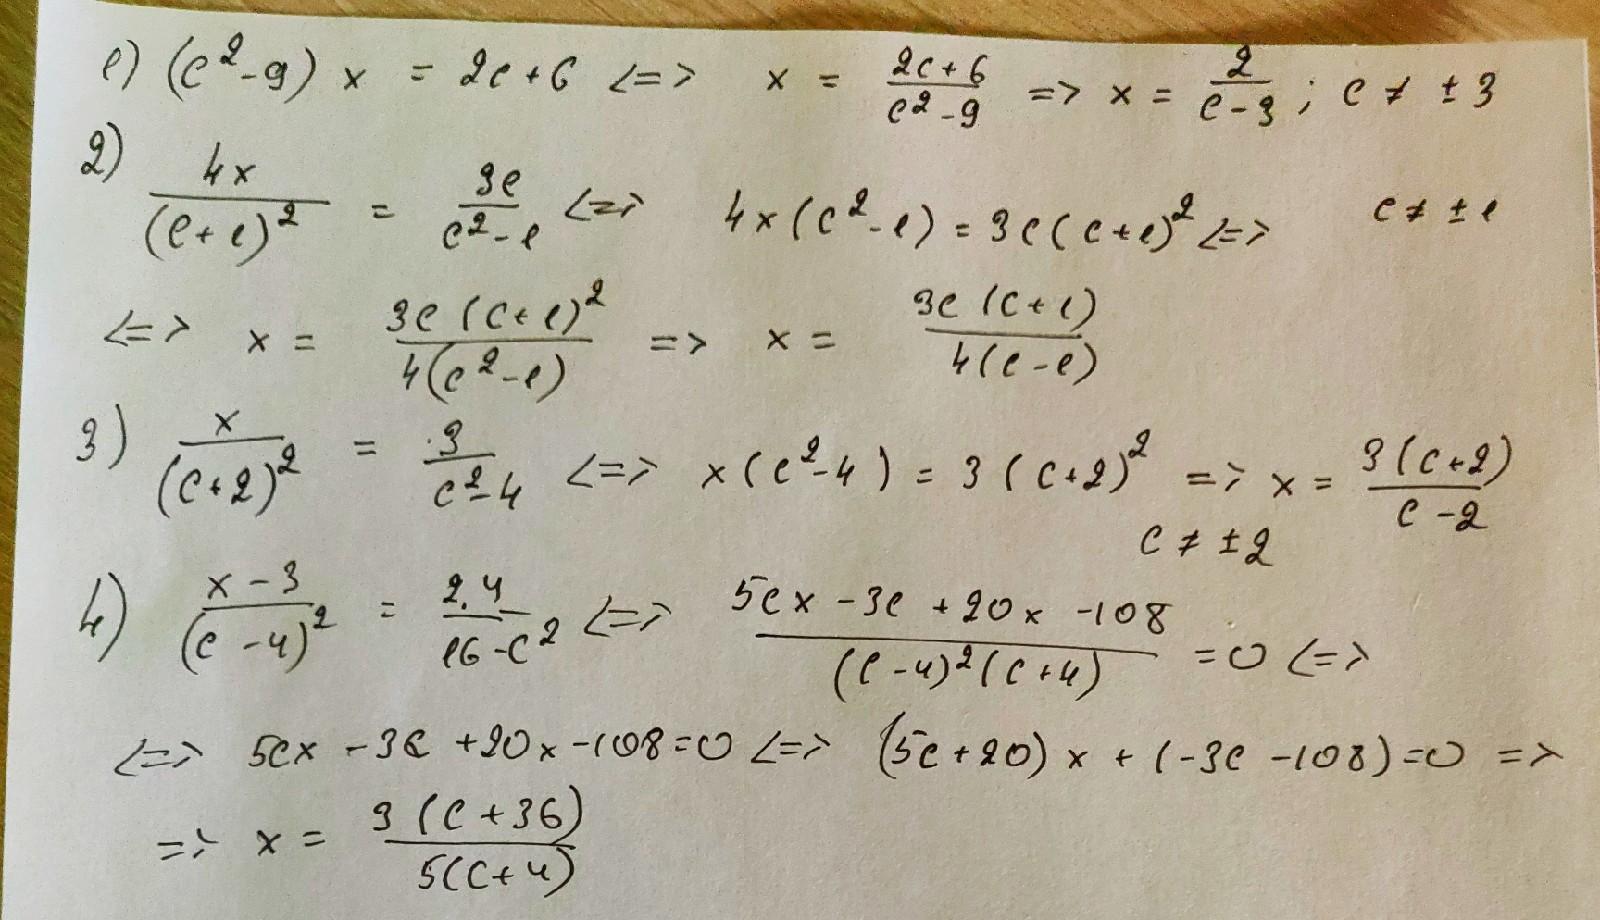 1) (c²-9) x = 2c+6 <=> x = (2c+6)/(c²-9) => x = 2/(c-3) ; c ≠ ±3
2) 4x/(c+1)² = 3c/(c²-1) <=> 4x(c²-1) = 3c(c+1)² <=> c ≠ ±1
<=> x = 3c(c+1)²/4(c²-1) => x = 3c(c+1)/4(c-1)
3) x/(c+2)² = 3/(c²-4) <=> x(c²-4) = 3(c+2)² => x = 3(c+2)/(c-2)
c ≠ ±2
4) (x-3)/(c-4)² = 2.4/(16-c²) <=> (5cx-3c+20x-108)/((c-4)²(c+4)) = 0 <=>
<=> 5cx-3c+20x-108=0 <=> (5c+20)x+(-3c-108)=0 =>
=> x = 3(c+36)/5(c+4)